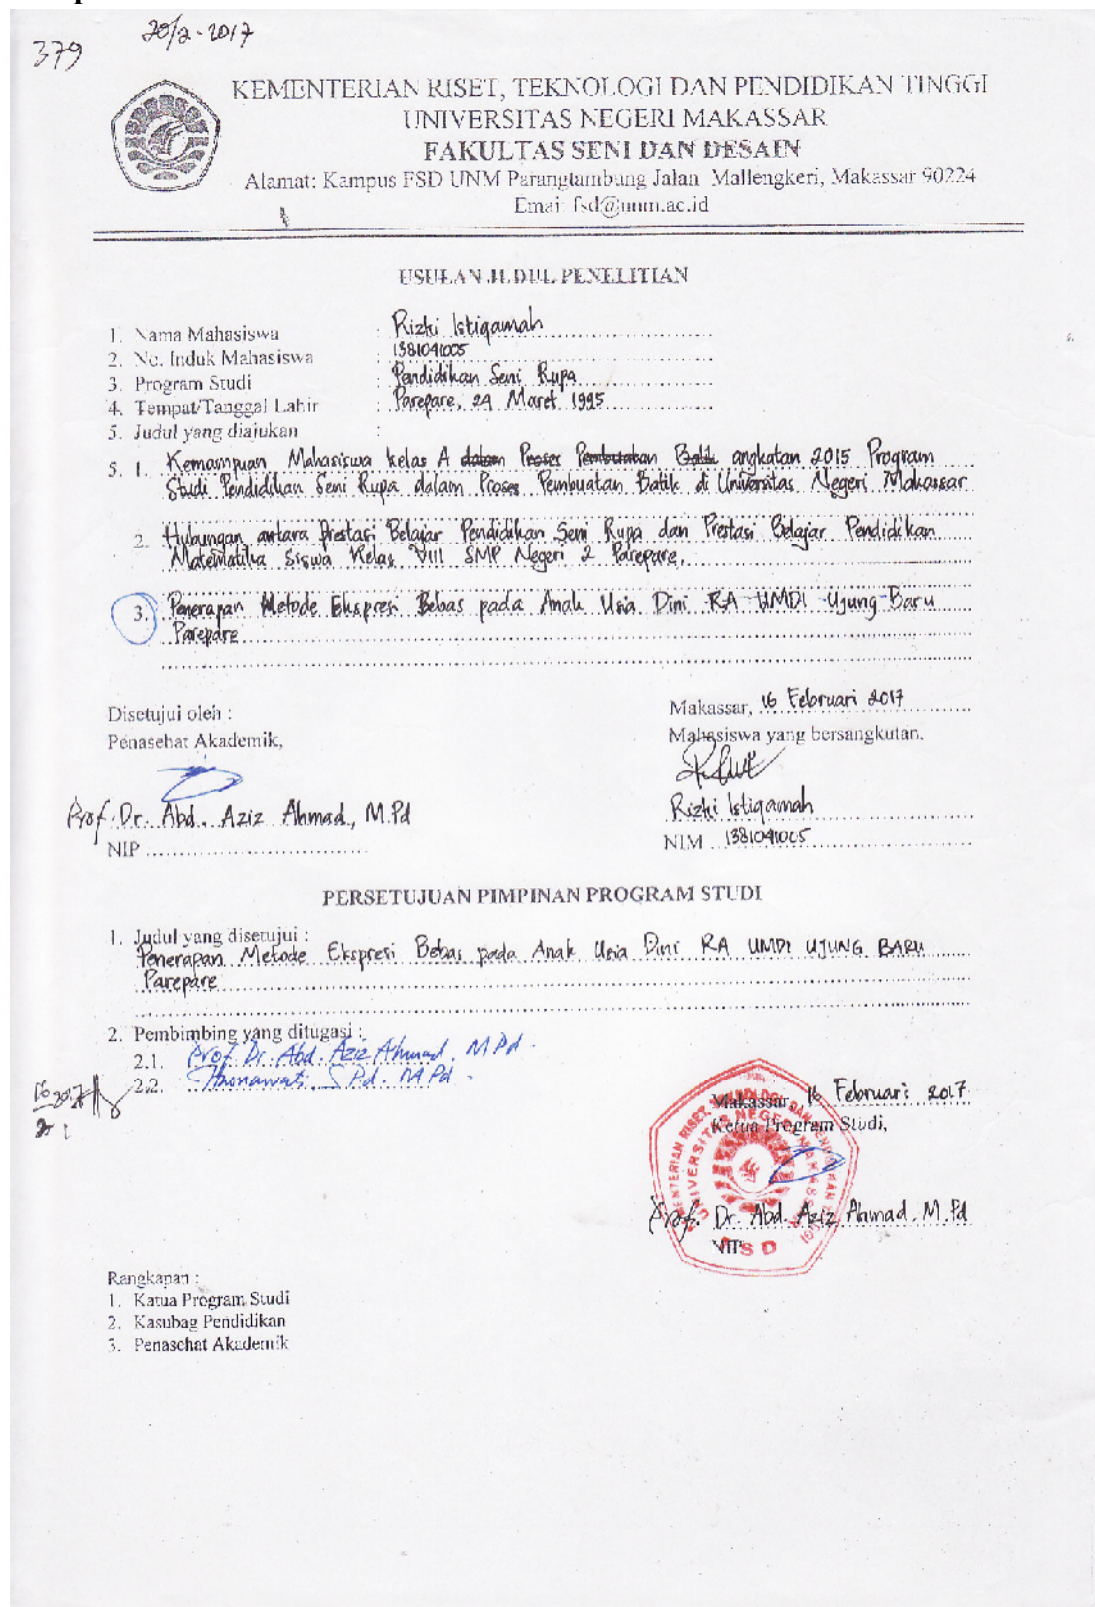 20/2-2017
379
KEMENTERIAN RISET, TEKNOLOGI DAN PENDIDIKAN TINGGI
UNIVERSITAS NEGERI MAKASSAR
FAKULTAS SENI DAN DESAIN
Alamat: Kampus FSD UNM Parangtambung Jalan Mallengkeri, Makassar 90224
Email fsd@unm.ac.id
USULAN JUDUL PENELITIAN
1. Nama Mahasiswa : Rizki Istiqamah
2. No. Induk Mahasiswa : 1381041005
3. Program Studi : Pendidikan Seni Rupa
4. Tempat/Tanggal Lahir : Parepare, 24 Maret 1995
5. Judul yang diajukan :
5. 1. Kemampuan Mahasiswa kelas A dalam Proses Pembuatan Batik angkatan 2015 Program
Studi Pendidikan Seni Rupa dalam Proses Pembuatan Batik di Universitas Negeri Makassar
2. Hubungan antara Prestasi Belajar Pendidikan Seni Rupa dan Prestasi Belajar Pendidikan
Matematika Siswa Kelas VIII SMP Negeri 2 Parepare.
3. Penerapan Metode Ekspresi Bebas pada Anak Usia Dini RA UMDI Ujung Baru
Parepare
Disetujui oleh :
Penasehat Akademik,
Prof. Dr. Abd. Aziz Ahmad, M.Pd
NIP
Makassar, 16 Februari 2017
Mahasiswa yang bersangkutan.
Rizki Istiqamah
NIM 1381041005
PERSETUJUAN PIMPINAN PROGRAM STUDI
1. Judul yang disetujui :
Penerapan Metode Ekspresi Bebas pada Anak Usia Dini RA UMDI UJUNG BARU
Parepare
2. Pembimbing yang ditugasi :
2.1. Prof. Dr. Abd. Aziz Ahmad, M.Pd.
2.2. Hasnawati, S.Pd. M.Pd.
Makassar, 16 Februari 2017
Ketua Program Studi,
Prof. Dr. Abd. Aziz Ahmad, M.Pd
NIP
FSD
Rangkapan :
1. Katua Program Studi
2. Kasubag Pendidikan
3. Penasehat Akademik